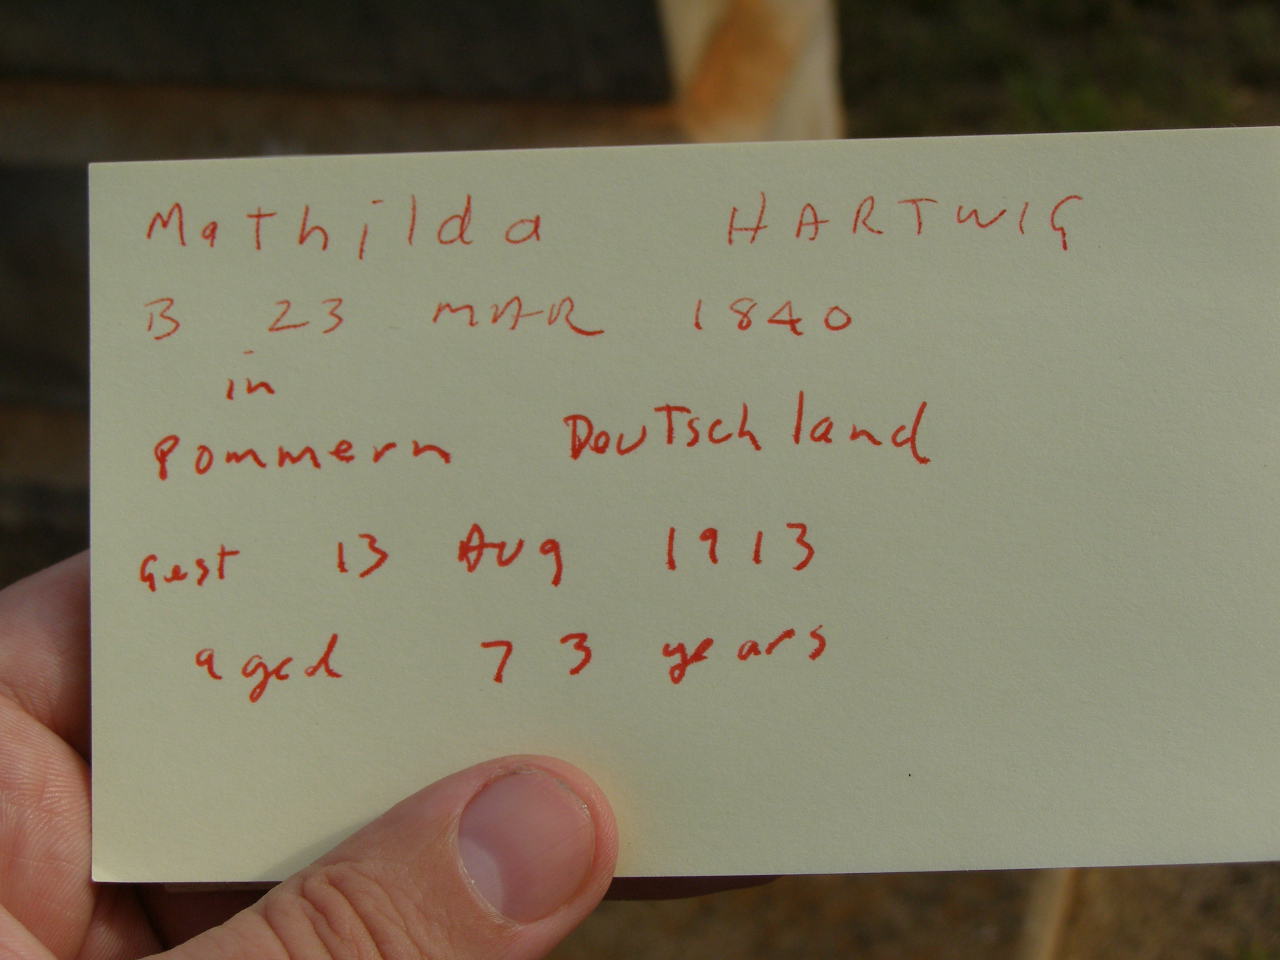 Mathilda HARTWIG
B 23 MAR 1840
in
Pommern Deutschland
Gest 13 Aug 1913
aged 73 years